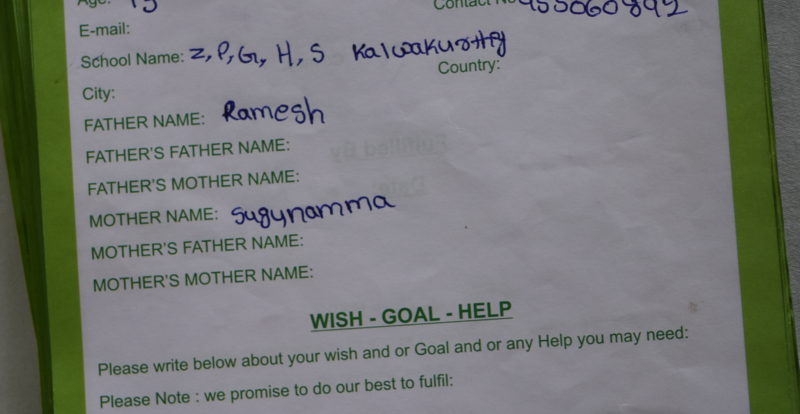 Age: 15
Contact No 955060892
E-mail:
School Name: Z, P, G, H, S Kalwakurthy
City: Country:
FATHER NAME: Ramesh
FATHER'S FATHER NAME:
FATHER'S MOTHER NAME:
MOTHER NAME: Sugunamma
MOTHER'S FATHER NAME:
MOTHER'S MOTHER NAME:
WISH - GOAL - HELP
Please write below about your wish and or Goal and or any Help you may need:
Please Note : we promise to do our best to fulfil: